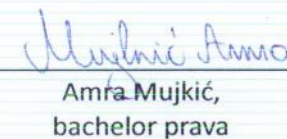 Mujkić Amra
Amra Mujkić,
bachelor prava